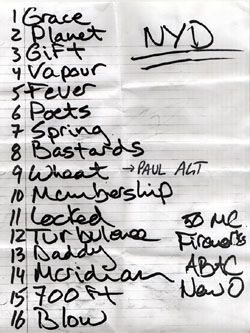 NYD
1 Grace
2 Planet
3 Gift
4 Vapour
5 Fever
6 Poets
7 Spring
8 Bastards
9 Wheat → PAUL ALT
10 Membership
11 Locked
12 Turbulence
13 Daddy
14 Meridian
15 700 ft
16 Blow
50 MC
Fireworks
AB+C
New O